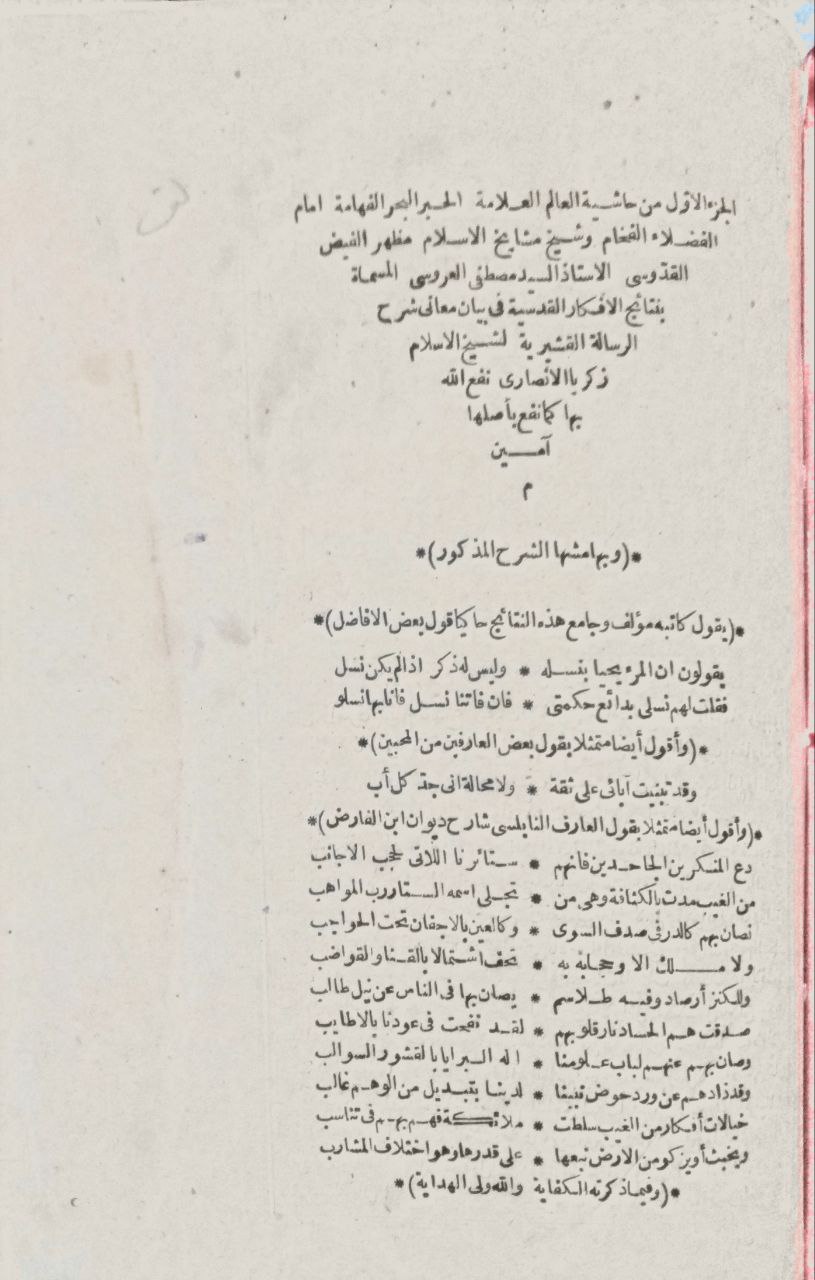 الجزء الاول من حاشية العالم العلامة الحبر البحر الفهامة امام
الفضلاء الفخام وشيخ مشايخ الاسلام مظهر الفيض
القدّوسى الاستاذ السيد مصطفى العروسى المسماة
بنتائج الافكار القدسية فى بيان معانى شرح
الرسالة القشيرية لشيخ الاسلام
زكريا الانصارى نفع الله
بها كما نفع بأصلها
آمين
م
*(وبهامشها الشرح المذكور)*
*(يقول كاتبه مؤلف وجامع هذه النتائج حاكيا قول بعض الافاضل)*
يقولون ان المرء يحيا بنسله * وليس له ذكر اذا لم يكن نسل
فقلت لهم نسلى بدائع حكمتى * فان فاتنا نسل فانا بها نسلو
*(وأقول أيضا متمثلا بقول بعض العارفين من المحبين)*
وقد تبنيت آبائى على ثقة * ولا محالة انى جدّ كل أب
*(وأقول أيضا متمثلا بقول العارف النابلسى شارح ديوان ابن الفارض)*
دع المنكرين الجاحدين فانهم * ستائرنا اللاتى لحجب الاجانب
من الغيب مدت بالكثافة وهى من * تجلى اسمه الستار رب المواهب
نصان بهم كالدر فى صدف السوى * وكالعين بالاجفان تحت الحواجب
ولا ملك الا وحجابه به * تحف اشتمالا بالقنا والقواضب
وللكنز أرصاد وفيه طلاسم * يصان بها فى الناس عن نيل طالب
صدقت هم الحساد نار قلوبهم * لقد نفحت فى عودنا بالاطايب
وصان بهم عنهم لباب علومنا * اله البرايا بالقشور السوالب
وقد ذادهم عن ورد حوض نبينا * لدينا بتبديل من الوهم غالب
خيالات أفكار من الغيب سلطت * ملائكة فهم بهم فى تناسب
ويخبث أو يزكو من الارض نبعها * على قدرها وهو اختلاف المشارب
*(وفيما ذكرته الكفاية والله ولى الهداية)*